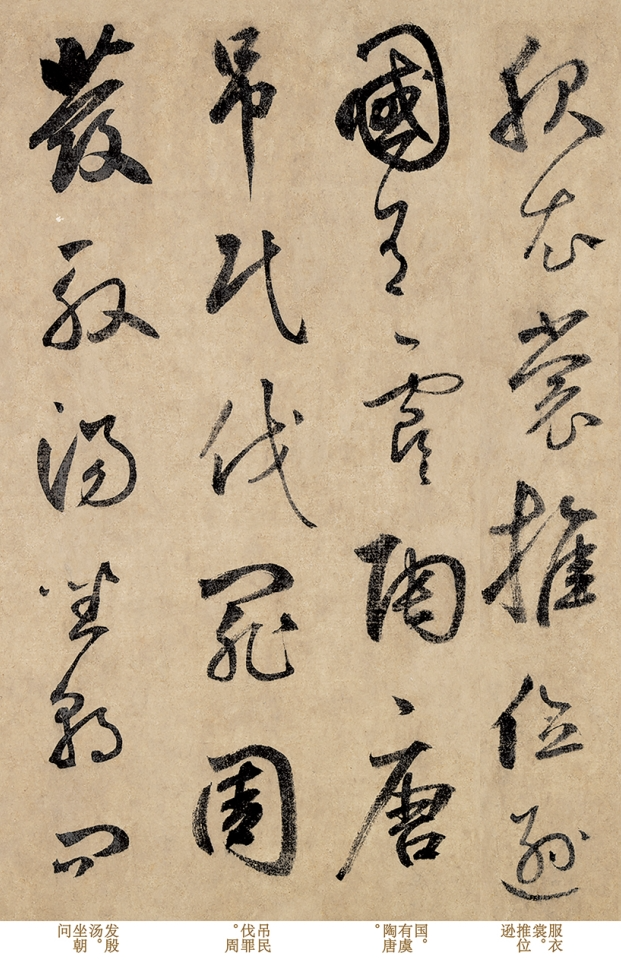 服衣裳推位遜
國有虞陶唐
吊民伐罪周
發殷湯坐朝問
服衣
裳。
推位
逊
国。
有虞
陶唐
。
吊民
伐罪
。周
发殷
汤。
坐朝
问